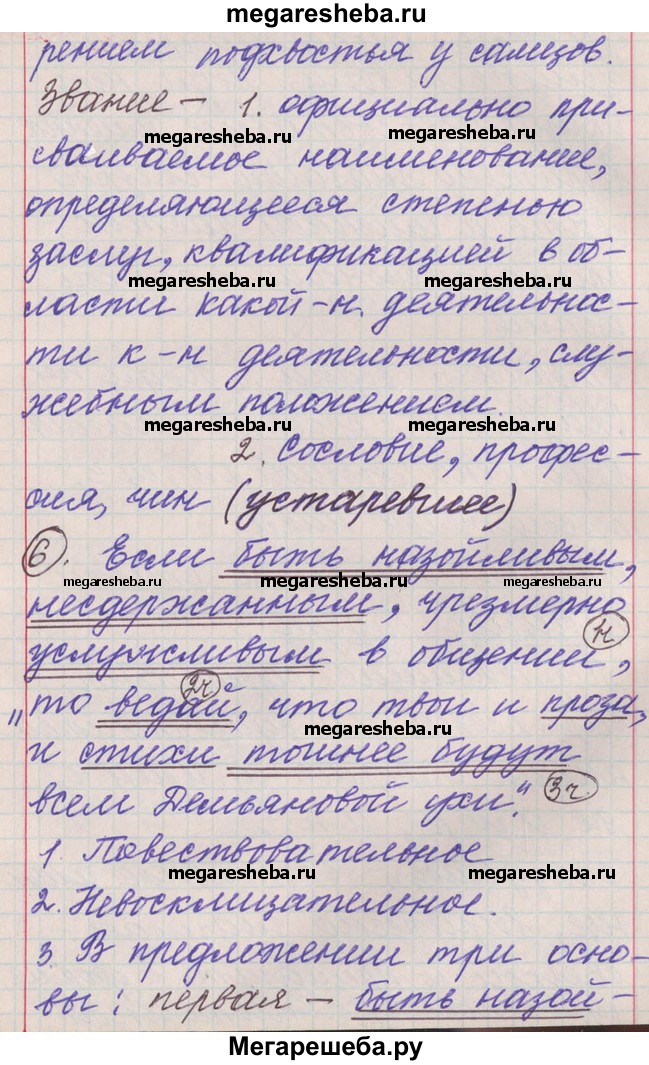 megaresheba.ru
рением подхвостья у самцов.
Звание – 1. официально при-
megaresheba.ru megaresheba.ru
сваиваемое наименование,
определяющееся степенью
заслуг, квалификацией в об-
megaresheba.ru megaresheba.ru
ласти какой-н. деятельнос-
ти к-н деятельности, слу-
жебным положением.
megaresheba.ru megaresheba.ru
2. Сословие, профес-
сия, чин (устаревшее)
6. Если быть назойливым,
megaresheba.ru megaresheba.ru
несдержанным, чрезмерно
услужливым в общении,
1ч
2ч
„то ведай, что твои и проза,
megaresheba.ru
и стихи тошнее будут
всем Демьяновой ухи".
3ч
1. Повествовательное
megaresheba.ru megaresheba.ru
2. Невосклицательное.
3. В предложении три осно-
megaresheba.ru megaresheba.ru
вы: первая – быть назой-
Мегарешеба.ру